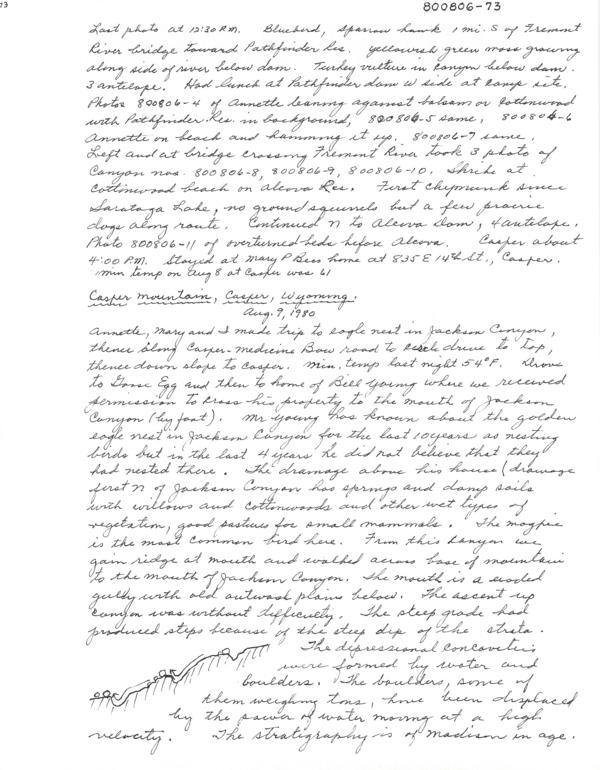 73
800806-73
Last photo at 12:30 P.M. Bluebird, sparrow hawk 1 mi. S of Fremont
River bridge toward Pathfinder Res. yellowish green moss growing
along side of river below dam. Turkey vulture in canyon below dam.
3 antelope. Had lunch at Pathfinder dam W side at camp site.
Photos 800806-4 of Annette leaning against balsam or cottonwood
with Pathfinder Res. in background, 800806-5 same, 800806-6
Annette on beach and hamming it up. 800806-7 same.
Left and at bridge crossing Fremont River took 3 photo of
Canyon nos. 800806-8, 800806-9, 800806-10. Shrike at
Cottonwood beach on Alcova Res. First chipmunk since
Saratoga Lake, no ground squirrels but a few prairie
dogs along route. Continued N to Alcova Dam, 4 antelope.
Photo 800806-11 of overturned beds before Alcova. Casper about
4:00 P.M. Stayed at Mary P Bees home at 835 E 14th St., Casper.
min temp on Aug 8 at Casper was 61
Casper Mountain, Casper, Wyoming.
Aug. 9, 1980
Annette, Mary and I made trip to eagle nest in Jackson Canyon,
thence along Casper-Medicine Bow road to circle drive to top,
thence down slope to Casper. Min. temp last night 54°F. Drove
to Goose Egg and then to home of Bill Young where we received
permission to cross his property to the mouth of Jackson
Canyon (by foot). Mr Young has known about the golden
eagle nest in Jackson Canyon for the last 10 years as nesting
birds but in the last 4 years he did not believe that they
had nested there. The drainage above his house (drainage
first N of Jackson Canyon has springs and damp soils
with willows and cottonwoods and other wet types of
vegetation, good pastures for small mammals. The magpie
is the most common bird here. From this canyon we
gain ridge at mouth and walked across base of mountain
to the mouth of Jackson Canyon. The mouth is a eroded
gulley with old outwash plains below. The ascent up
canyon was without difficulty. The steep grade had
produced steps because of the steep dip of the strata.
The depressional concavities
were formed by water and
boulders. The boulders, some of
them weighing tons, have been displaced
by the power of water moving at a high
velocity. The stratigraphy is of Madison in age.